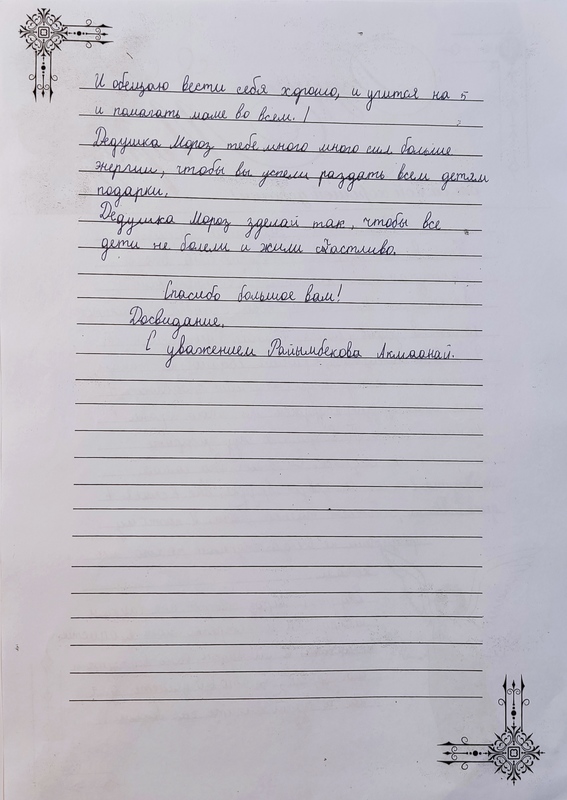 И обещаю вести себя хорошо, и учится на 5
и помагать маме во всем. !
Дедушка Мороз тебе много много сил больше
энергии, чтобы вы успели раздать всем детям
подарки.
Дедушка Мороз зделай так, чтобы все
дети не болели и жили счастливо.
Спасибо большое вам!
Досвидание.
С уважением Райымбекова Акмаанай.